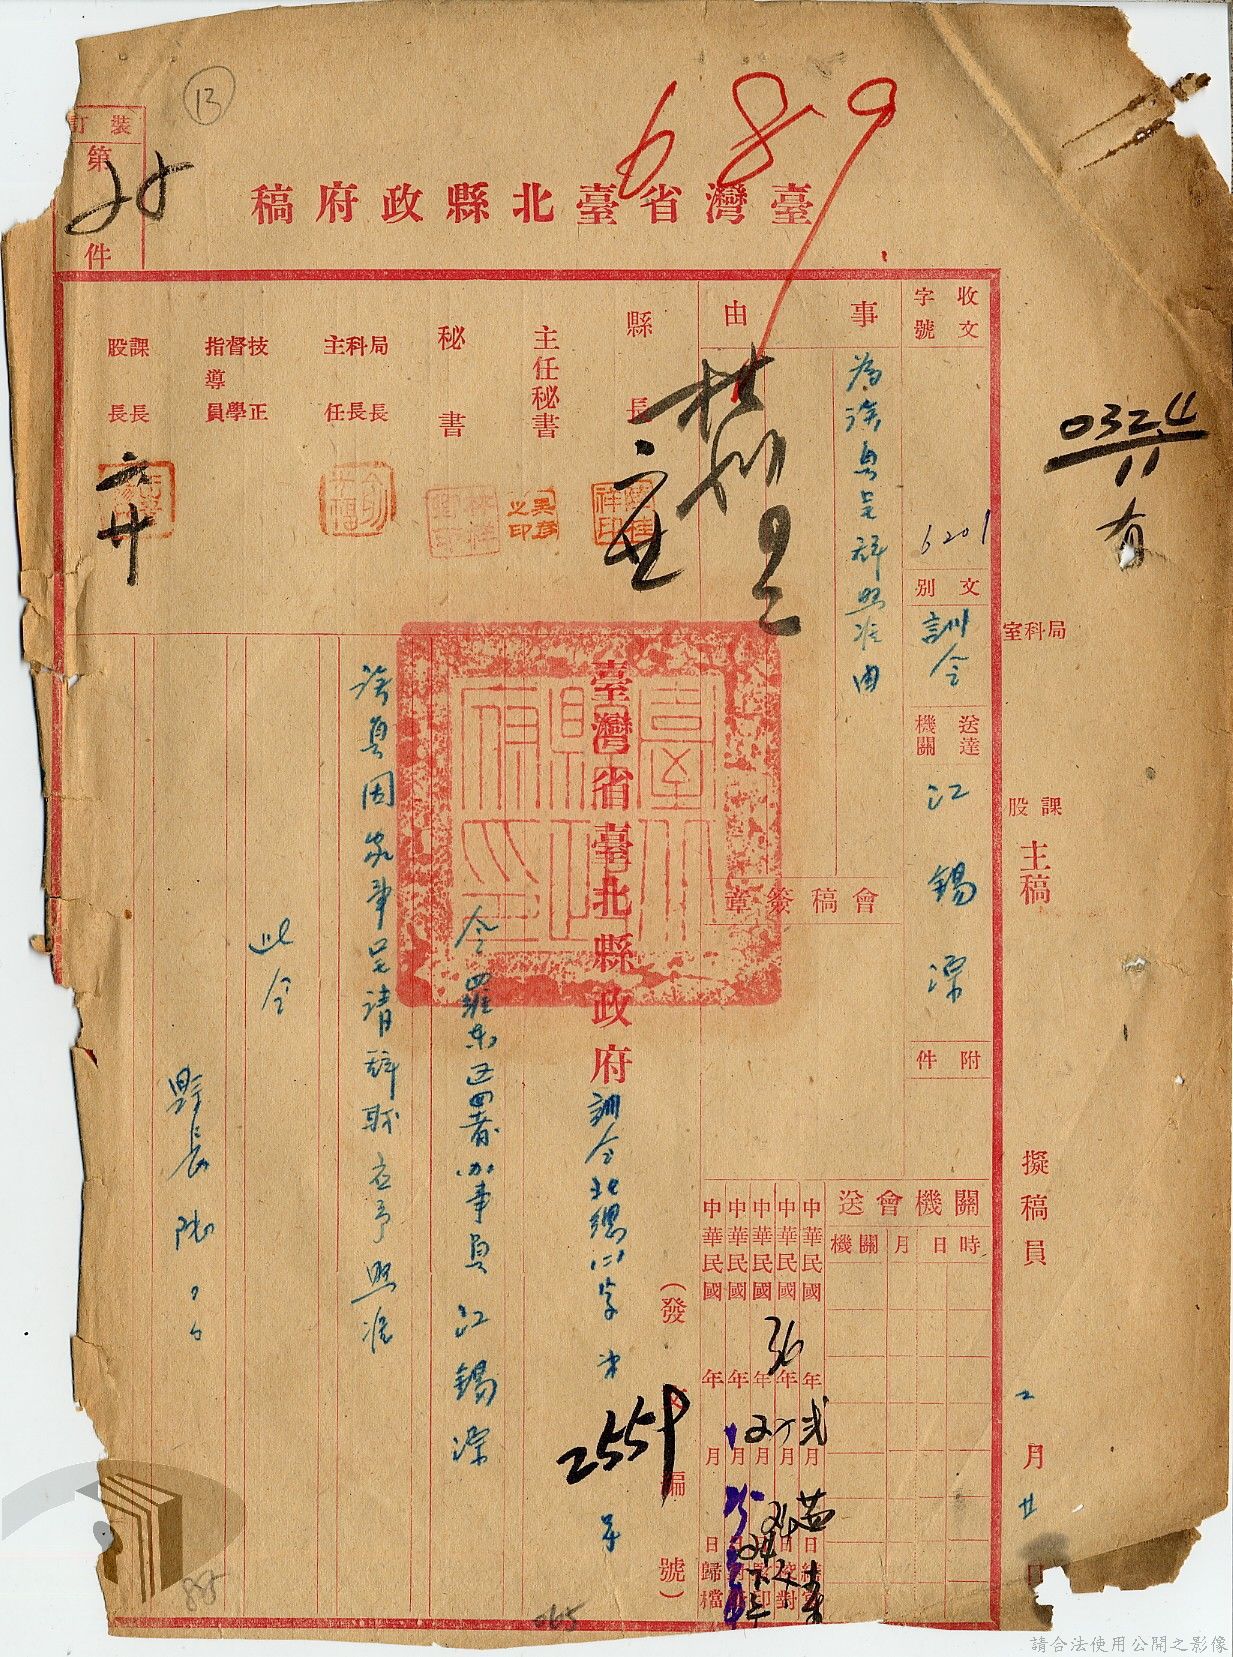 13
裝訂
第
25
件
689
臺灣省臺北縣政府稿
0324
11
有
局科室
課股
主稿
擬稿員
二月廿日
收文字號
6201
文別
訓令
送達機關
江錫深
附件
事由
為該員呈辭照准由
會稿簽章
送會機關
機關
月日時
縣長
主任秘書
秘書
局長
科長
主任
技正
督學
指導員
課長
股長
中華民國 年 月 日
中華民國36年 月 日校對
中華民國 年 月 日
中華民國 年 月 日
中華民國 年 月 日歸檔
臺灣省臺北縣政府訓令北總(一)字第2559號
(發文編號)
令羅東區署辦事員江錫深
該員因家事呈請辭職應予照准
此令
縣長陸○○
065
請合法使用公開之影像